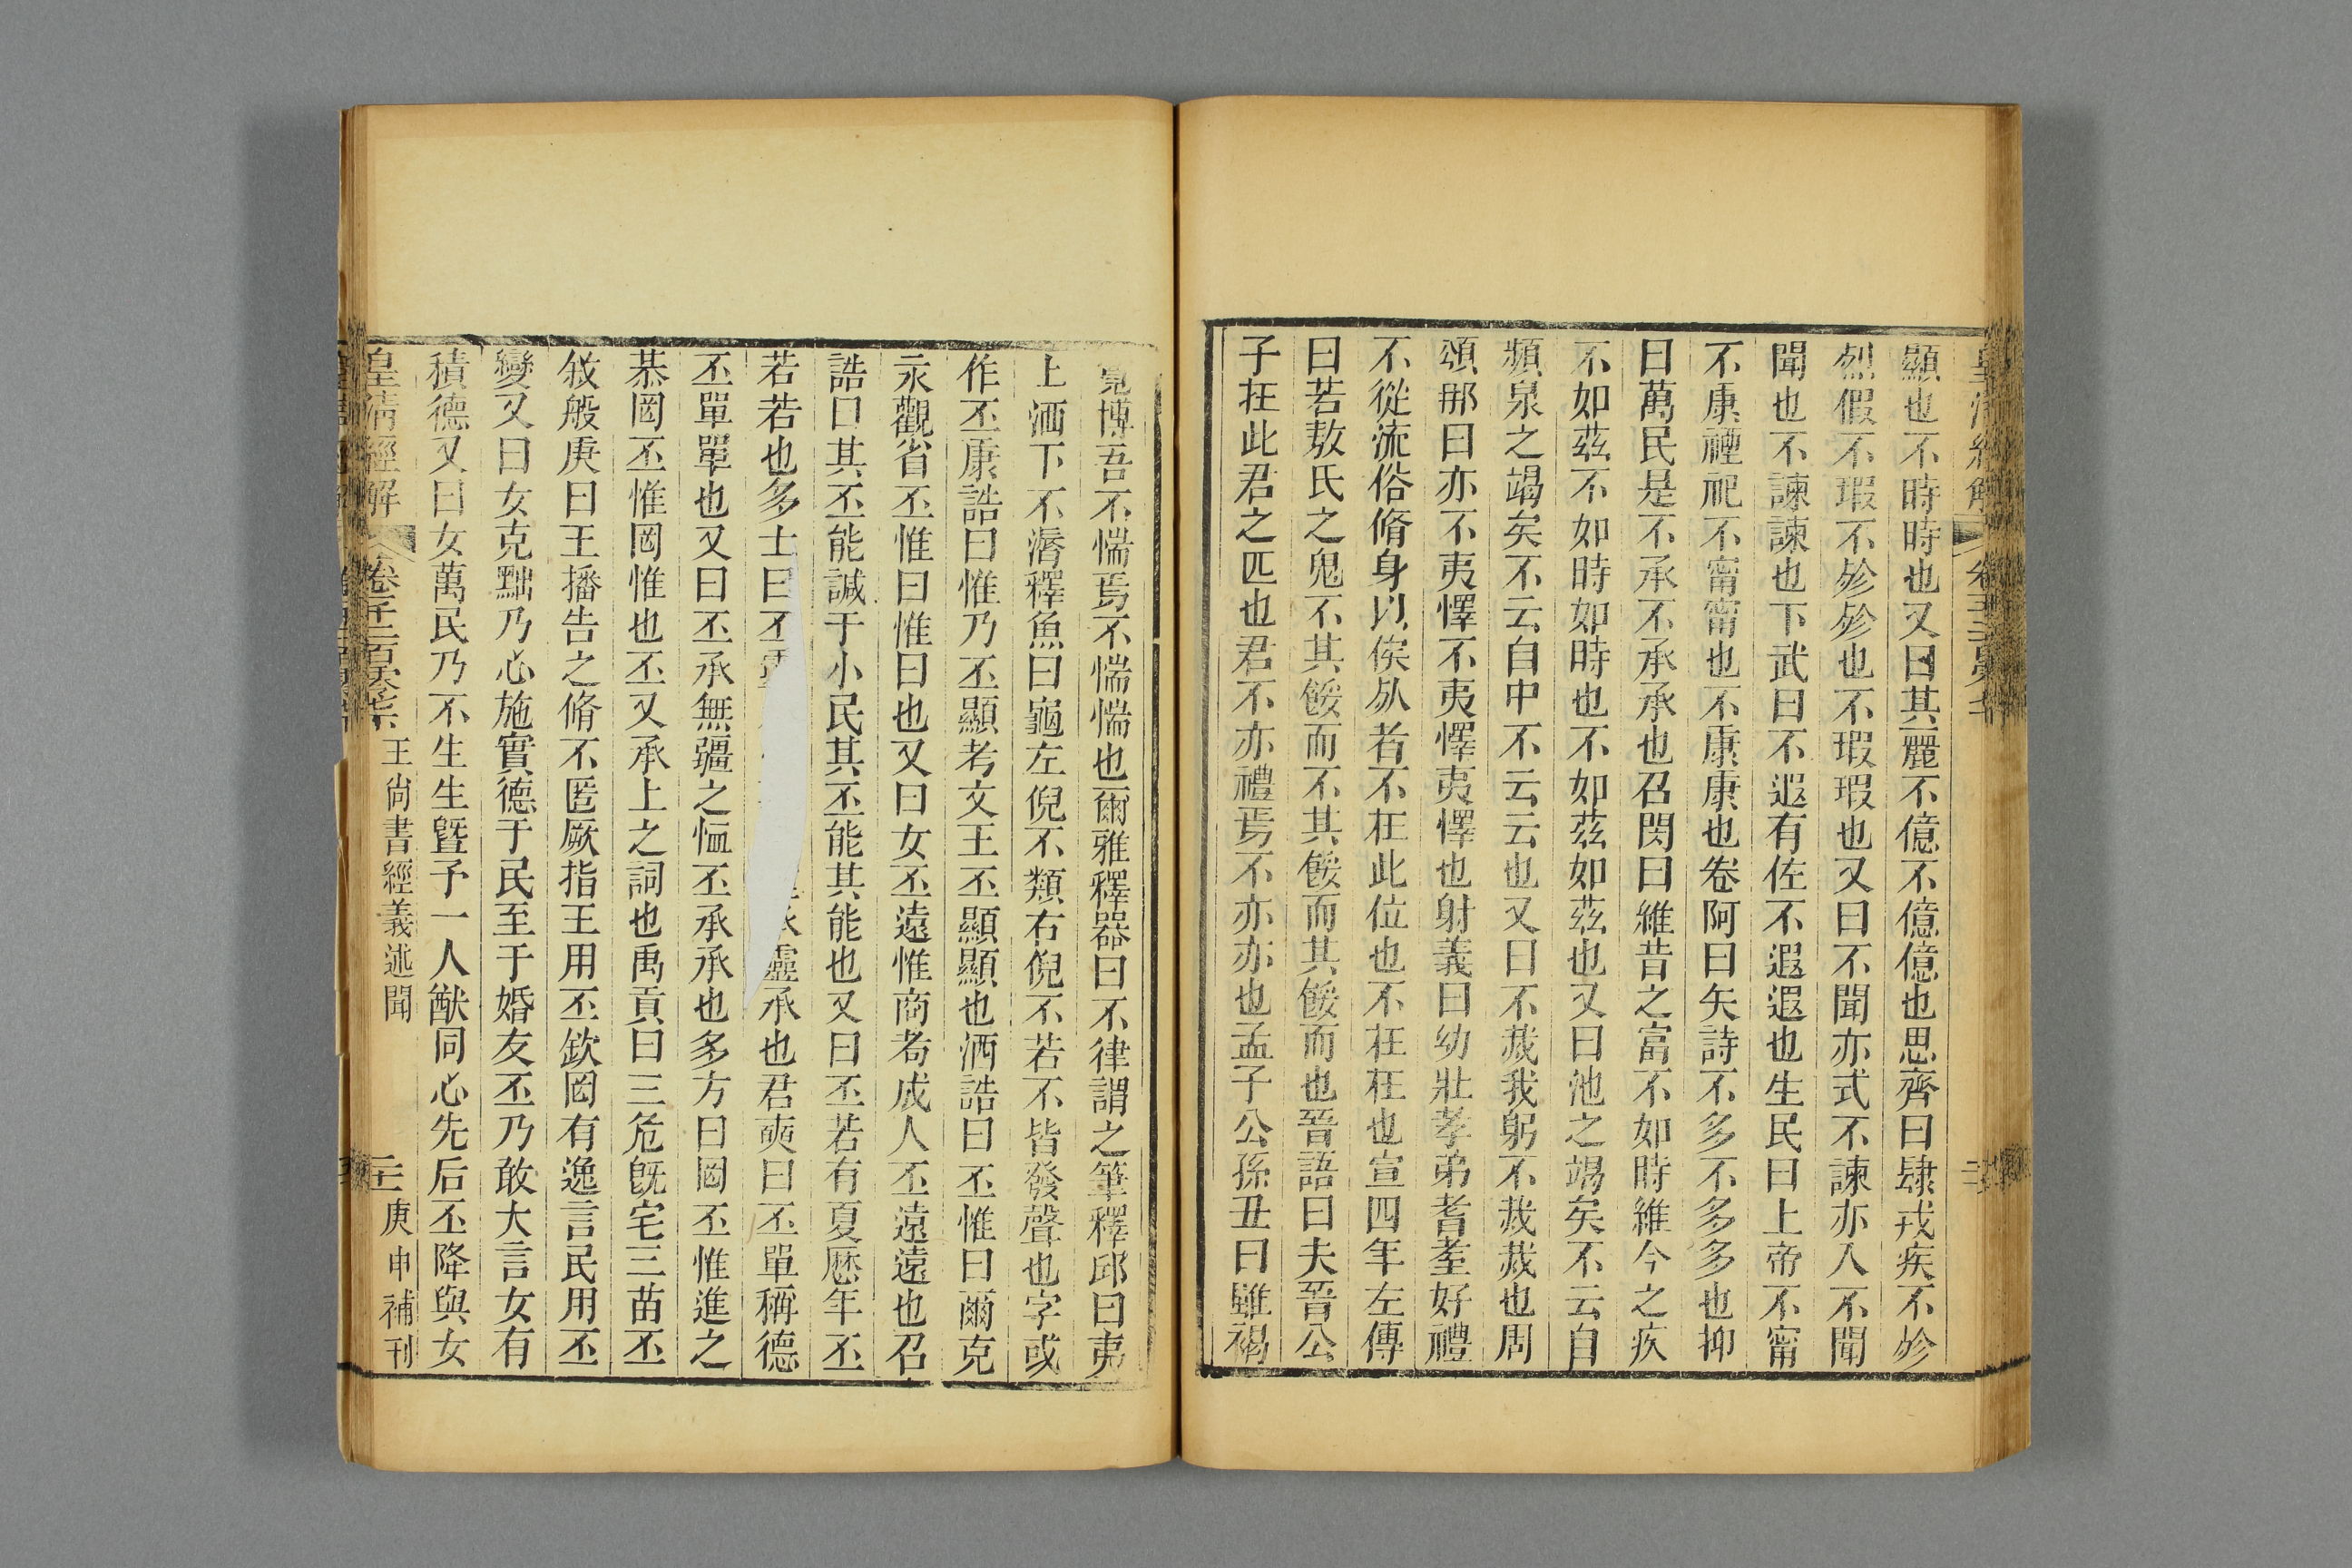 顯也不時時也又曰其麗不億不億億也思齊曰肆戎疾不殄
烈假不瑕不殄殄也不瑕瑕也又曰不聞亦式不諫亦入不聞
聞也不諫諫也下武曰不遐有佐不遐遐也生民曰上帝不甯
不康禋祀不甯甯也不康康也卷阿曰矢詩不多不多多也抑
曰萬民是不承不承承也召閔曰維昔之富不如時維今之疚
不如茲不如時如時也不如茲如茲也又曰池之竭矣不云自
頻泉之竭矣不云自中不云云也又曰不烖我躬不烖烖也周
頌那曰亦不夷懌不夷懌夷懌也射義曰幼壯孝弟耆耋好禮
不從流俗脩身以俟死者不在此位也不在在也宣四年左傳
曰若敖氏之鬼不其餒而不其餒而其餒而也晉語曰夫晉公
子在此君之匹也君不亦禮焉不亦亦也孟子公孫丑曰雖褐
寬博吾不惴焉不惴惴也爾雅釋器曰不律謂之筆釋邱曰夷
上洒下不漘釋魚曰龜左倪不類右倪不若不皆發聲也字或
作丕康誥曰惟乃丕顯考文王丕顯顯也酒誥曰丕惟曰爾克
永觀省丕惟曰惟曰也又曰女丕遠惟商耇成人丕遠遠也召
誥曰其丕能諴于小民其丕能其能也又曰丕若有夏歷年丕
若若也多士曰丕靈承也君奭曰丕單稱德
丕單單也又曰丕承無疆之恤丕承承也多方曰罔丕惟進之
恭罔丕惟罔惟也丕又承上之詞也禹貢曰三危旣宅三苗丕
敘般庚曰王播告之脩不匿厥指王用丕欽罔有逸言民用丕
變又曰女克黜乃心施實德于民至于婚友丕乃敢大言女有
積德又曰女萬民乃不生生曁予一人猷同心先后丕降與女
皇淸經解 卷千二百 王尙書經義述聞 庚申補刊